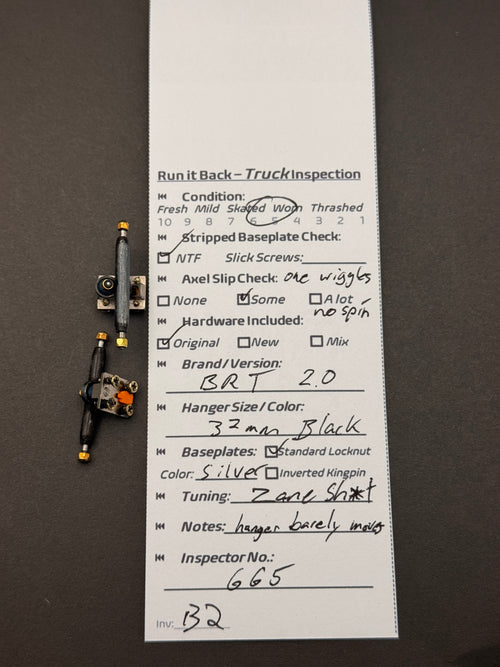 Run it Back – Truck Inspection
Condition:
Fresh Mild Skated Worn Thrashed
10 9 8 7 6 5 4 3 2 1
Stripped Baseplate Check:
NTF Slick Screws:
Axel Slip Check: one wiggles
None Some A lot
no spin
Hardware Included:
Original New Mix
Brand/Version:
BRT 2.0
Hanger Size/Color:
32mm Black
Baseplates: Standard Locknut
Color: Silver Inverted Kingpin
Tuning: Zane Sh*t
Notes: hanger barely moves
Inspector No.:
665
Inv: B2